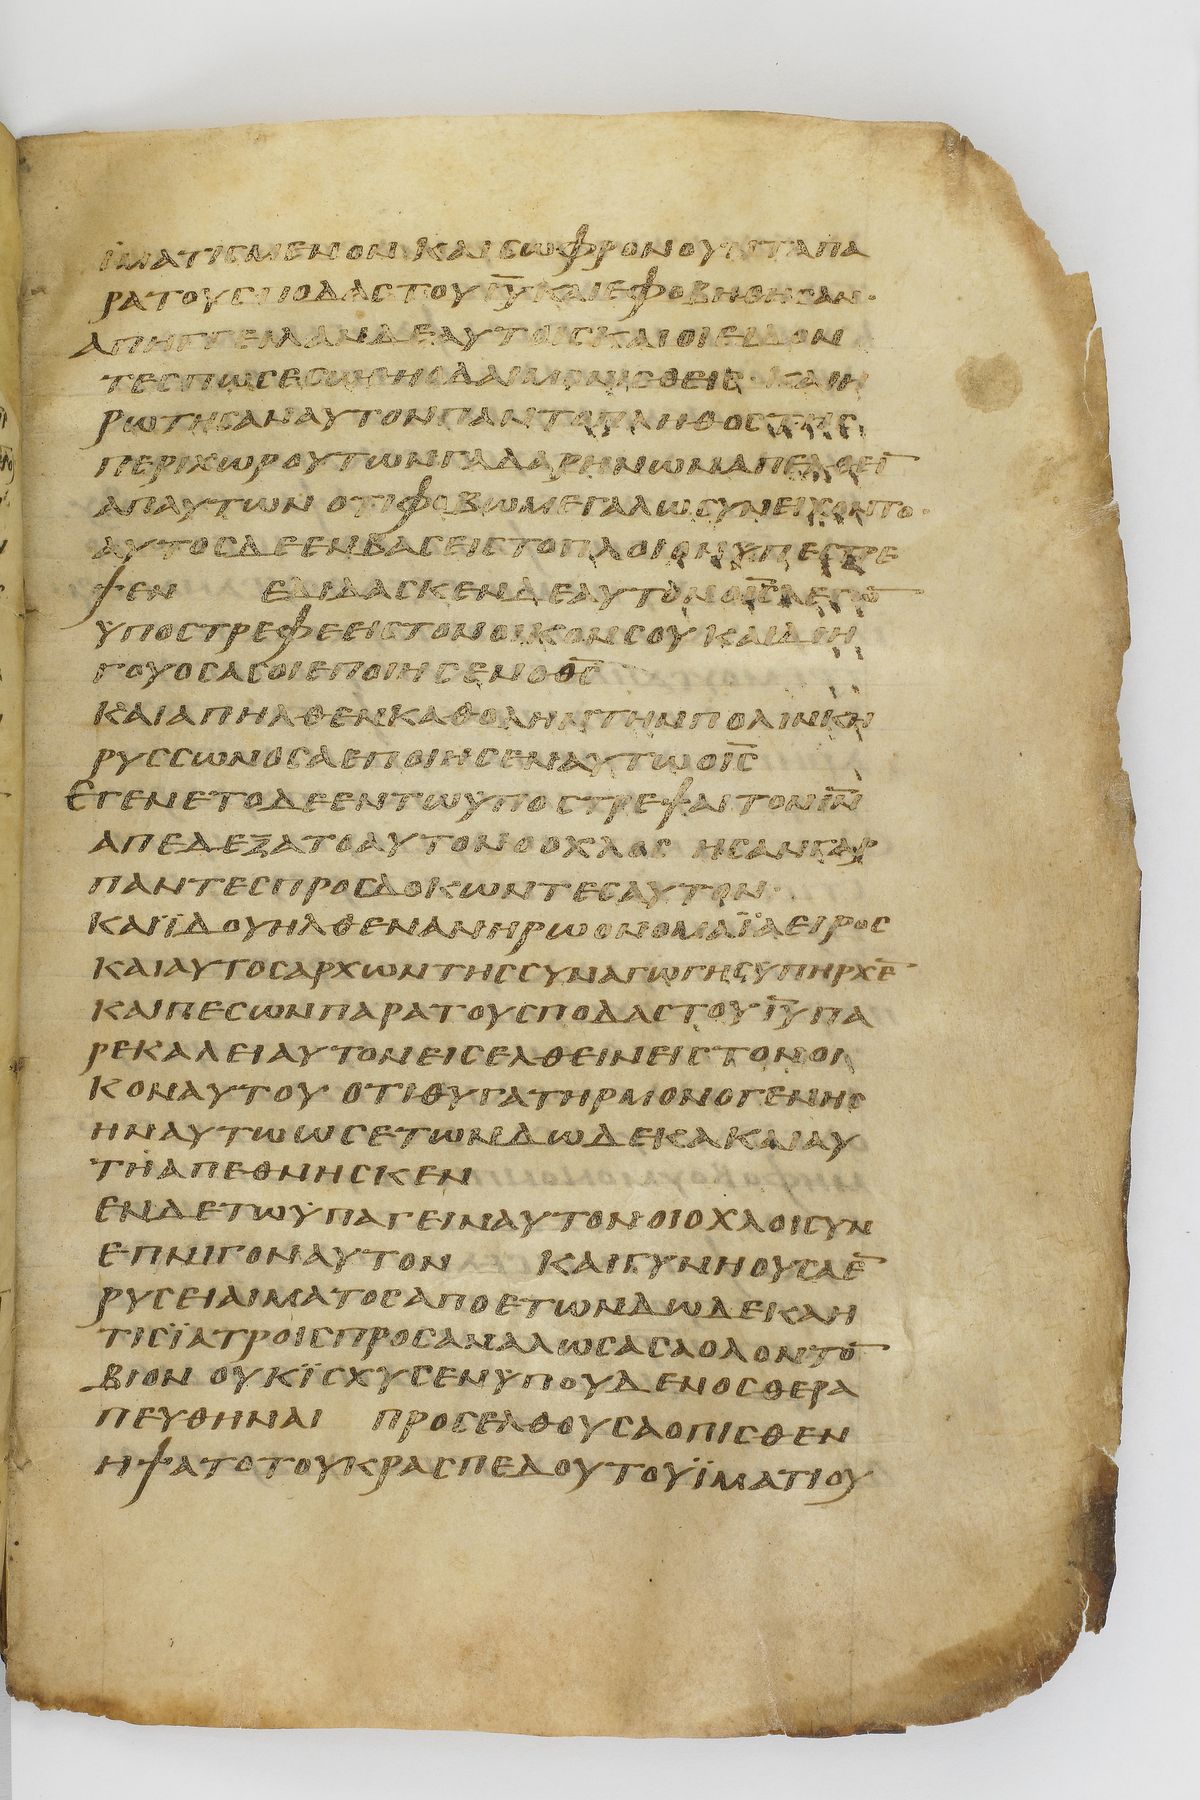 ϊματιϲμενονκαιϲωφρονουνταπα
ρατουϲποδαϲτουιυ̅καιεφοβηθηϲαν·
απηγγειλανδεαυτοιϲκαιοιειδον
τεϲπωϲεϲωθηοδαιμονιϲθειϲ·καιη
ρωτηϲαναυτονπαντοπληθοϲτηϲ
περιχωρουτωνγαδαρηνωναπελθει̅
απαυτωνοτιφοβωμεγαλωϲυνειχοντο·
αυτοϲδεενβαϲειϲτοπλοιονυπεϲτρε
ψεν εδιδαϲκενδεαυτονοιϲ̅λεγω̅
υποϲτρεφεειϲτονοικονϲουκαιδιη
γουοϲαϲοιεποιηϲενοθϲ̅
καιαπηλθενκαθοληντηνπολινκη
ρυϲϲωνοϲαεποιηϲεναυτωοιϲ̅
εγενετοδεεντωυποϲτρεψαιτονιν̅
απεδεξατοαυτονοοχλοϲ ηϲανγαρ
παντεϲπροϲδοκωντεϲαυτον·
καιϊδουηλθενανηρωονομαϊαειροϲ
καιαυτοϲαρχωντηϲϲυναγωγηϲυπηρχε̅
καιπεϲωνπαρατουϲποδαϲτουιυ̅πα
ρεκαλειαυτονειϲελθεινειϲτονοι
κοναυτου οτιθυγατηρμονογενηϲ
ηναυτωωϲετωνδωδεκακαιαυ
τηαπεθνηϲκεν
ενδετωϋπαγειναυτονοιοχλοιϲυν
επνιγοναυτον καιγυνηουϲαε̅
ρυϲειαιματοϲαποετωνδωδεκαη
τιϲϊατροιϲπροϲαναλωϲαϲαολοντο̅
βιον ουκϊϲχυϲενυπουδενοϲθερα
πευθηναι προϲελθουϲαοπιϲθεν
ηψατοτουκραϲπεδουτουϊματιου